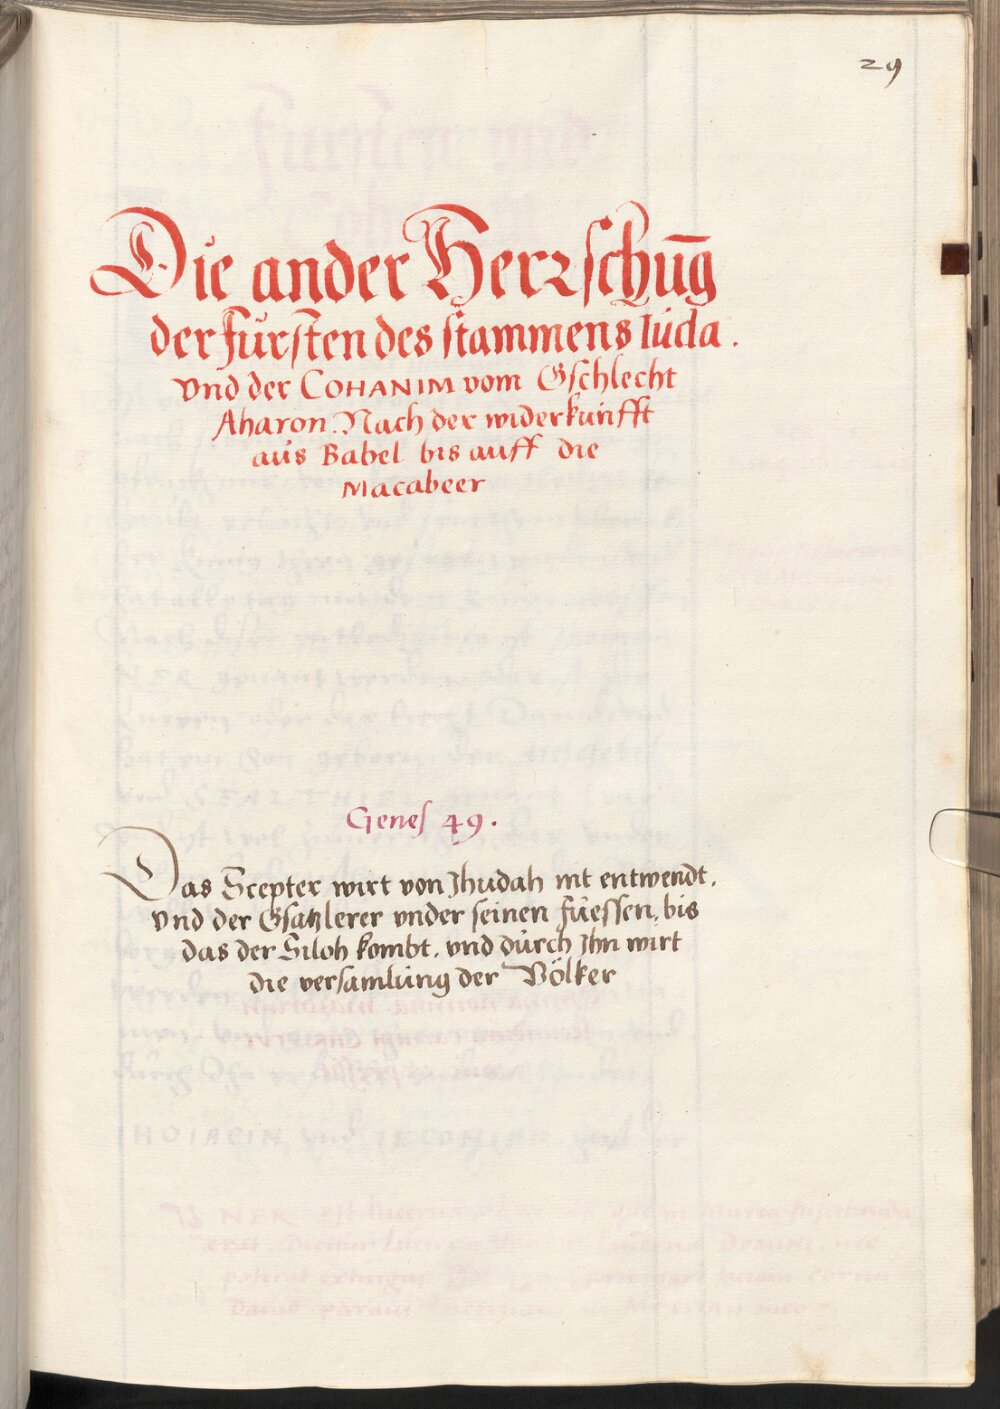 29
Die ander Herrschūg
der Fürsten des stammens Iuda.
vnd der COHANIM vom Gschlecht
Aharon. Nach der widerkunfft
aus Babel bis auff die
Macabeer
Genes 49.
Das Scepter wirt von Jhudah nit entwendt.
vnd der Gsatzlerer vnder seinen fuessen, bis
das der Siloh kombt. vnd durch Ihn wirt
die versamlung der Völker